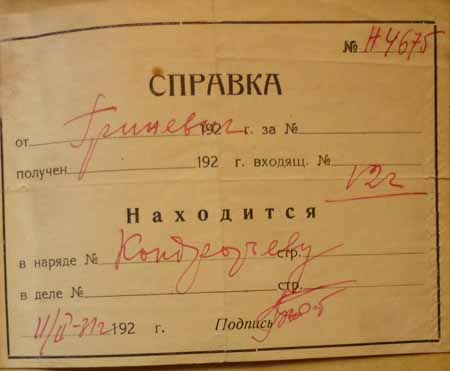 № Н4675
СПРАВКА
от Гриневич 192 г. за №
получен 192 г. входящ. №
Находится
в наряде № стр.
в деле № стр.
192 г. Подпись